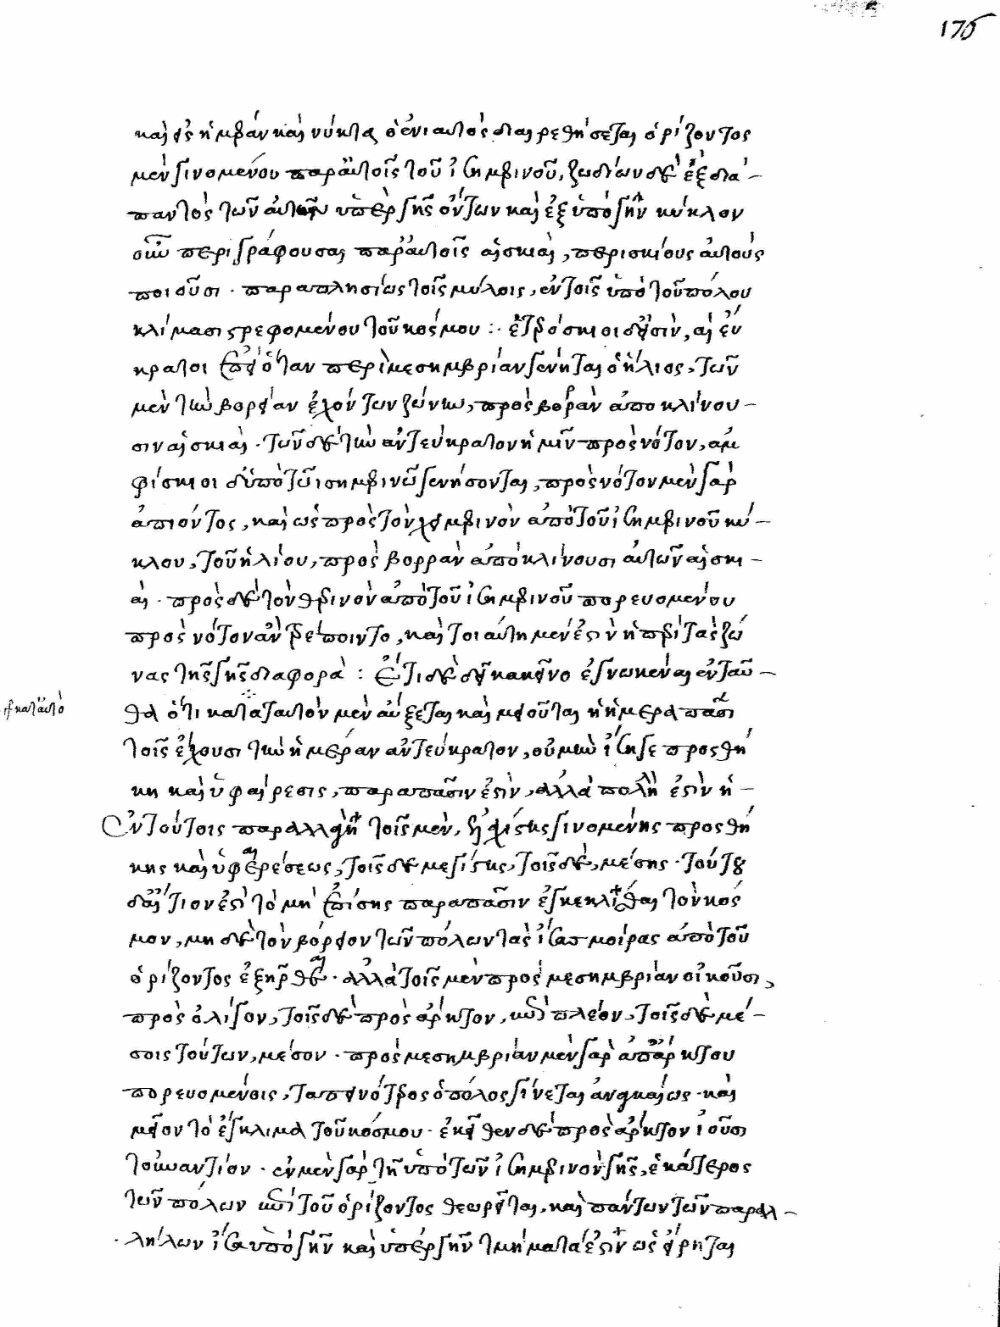 176
καὶ εἰς ἡμέραν καὶ νύκτα ὁ ἐνιαυτὸς διαιρεθήσεται ὁρίζοντος
μὲν γινομένου παρ' αὐτοῖς τοῦ ἰσημερινοῦ, ζωδίων δὲ ἓξ δια-
παντὸς τῶν αὐτῶν ὑπὲρ γῆς ὄντων καὶ ἓξ ὑπὸ γῆν κύκλον
οὖν περιγράφουσαι παρ' αὐτοῖς αἱ σκιαὶ, περισκίους αὐτοὺς
ποιοῦσι· παραπλησίως τοῖς μύλοις, ἐν τοῖς ὑπὸ τοῦ πόλου
κλίμασι στρεφομένου τοῦ κόσμου :· ἑτερόσκιοι δ' εἰσὶν, αἱ εὔ
κρατοι ἐφ' ὅταν περὶ μεσημβρίαν γένηται ὁ ἥλιος, τῶν
μὲν τὴν βορείαν ἐχόντων ζώνην, πρὸς βορρᾶν ἀποκλίνου-
σιν αἱ σκιαὶ· τῶν δὲ τὴν ἀντεύκρατον ἡμῖν πρὸς νότον, ἀμ
φίσκιοι δ' ὑπὸ τῷ ἰσημερινῷ γενήσονται, πρὸς νότον μὲν γὰρ
ἀπιόντος, καὶ ὡς πρὸς τὸν χειμερινὸν ἀπὸ τοῦ ἰσημερινοῦ κύ-
κλου, τοῦ ἡλίου, πρὸς βορρᾶν ἀποκλίνουσι αὐτῶν αἱ σκι-
αὶ· πρὸς δὲ τὸν θερινὸν ἀπὸ τοῦ ἰσημερινοῦ πορευομένου
πρὸς νότον ἂν ῥέποιντο, καί τοι αὕτη μέν ἐστιν ἡ περὶ τὰς ζώ
νας τῆς γῆς διαφορὰ : Ἔτι δὲ δεῖ κἀκεῖνο ἐγνωκέναι ἐνταῦ-
θα ὅτι κατὰ ταυτὸν μὲν αὔξεται καὶ μειοῦται ἡ ἡμέρα πᾶσι
κατὰ αὐτὸ
τοῖς ἔχουσι τὴν ἡμέραν ἀντεύκρατον, οὐ μὴν ἴση γε προσθή
κη καὶ ὑφαίρεσις, παραπᾶσιν ἐστὶν, ἀλλὰ πολλή ἐστιν ἡ-
ἐν τούτοις παραλλαγὴ τοῖς μὲν, ἐλαχίστης γινομένης προσθή
κης καὶ ὑφαιρέσεως, τοῖς δὲ μεγίστης, τοῖς δὲ, μέσης· τούτου
δ' αἴτιον ἐστὶ τὸ μὴ ἐπίσης παραπᾶσιν ἐγκεκλίσθαι τὸν κόσ
μον, μὴ δὲ τὸν βόρειον τῶν πόλων τὰς ἴσας μοίρας ἀπὸ τοῦ
ὁρίζοντος ἐξῆρθαι· ἀλλὰ τοῖς μὲν πρὸς μεσημβρίαν οἰκοῦσι,
πρὸς ὀλίγον, τοῖς δὲ πρὸς ἄρκτον, ἐπὶ πλέον, τοῖς δὲ μέ-
σοις τούτων, μέσον· πρὸς μεσημβρίαν μὲν γὰρ ἀπ' ἄρκτου
πορευομένοις, ταπεινότερος ὁ πόλος γίνεται ἀναγκαίως· καὶ
μεῖον τὸ ἔγκλιμα τοῦ κόσμου· ἐκεῖθεν δὲ πρὸς ἄρκτον ἰοῦσι
τοὐναντίον· ἐν μὲν γὰρ τῇ ὑπὸ τῶν ἰσημερινὸν γῆς, ἑκάτερος
τῶν πόλων ἐπὶ τοῦ ὁρίζοντος θεωρεῖται, καὶ πάντων τῶν παραλ-
λήλων ἴσα ὑπὸ γῆν καὶ ὑπὲρ γῆν τμήματά ἐστιν ὡς εἴρηται